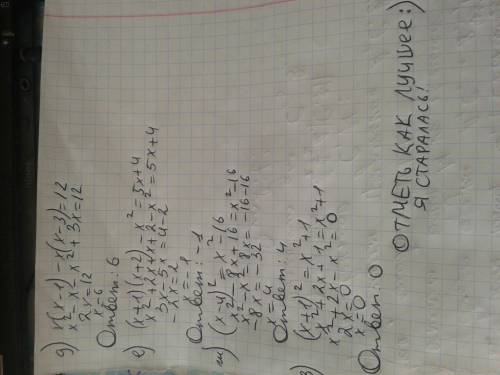 д) x(x-1)-x(x-3)=12
x²-x-x²+3x=12
2x=12
x=6
Ответ: 6
е) (x+1)(x+2)-x²=5x+4
x²+2x+x+2-x²=5x+4
3x-5x=4-2
-2x=2
x=-1
Ответ: -1
ж) (x-4)²=x²-16
x²-8x+16=x²-16
x²-x²-8x=-16-16
-8x=-32
x=4
Ответ: 4
з) (x+1)²=x²+1
x²+2x+1=x²+1
x²+2x-x²=0
2x=0
x=0
Ответ: 0
ОТМЕТЬ КАК ЛУЧШЕЕ:)
Я СТАРАЛАСЬ!